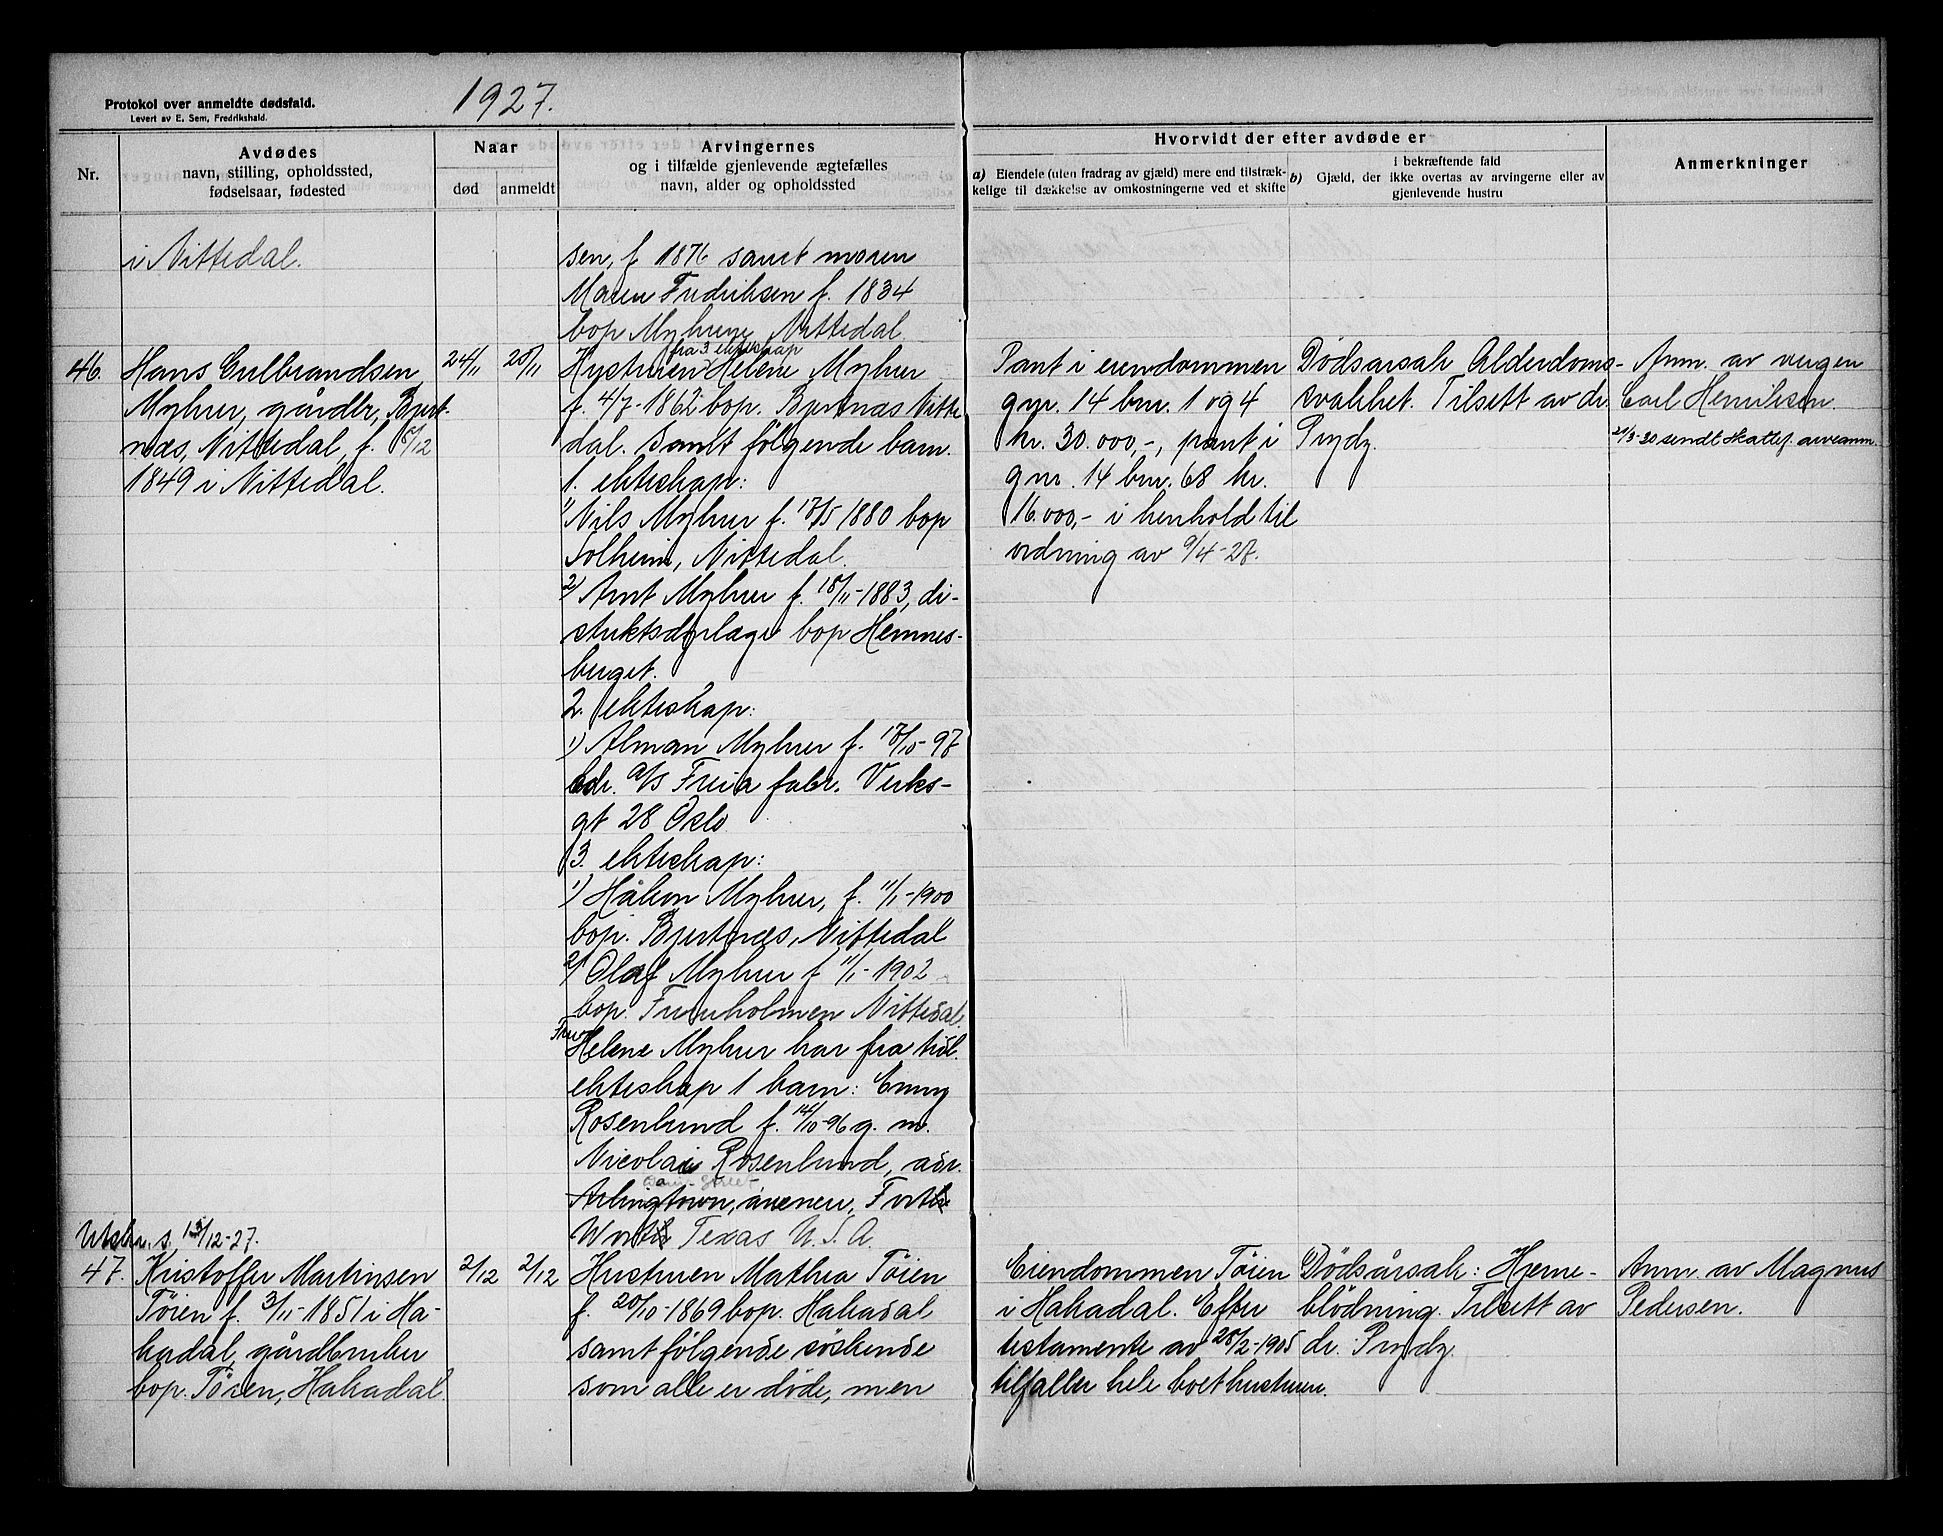 Protokol over anmeldte dødsfald.
Levert av E. Sem, Fredrikshald.
1927.
Nr.
Avdødes
navn, stilling, opholdssted,
fødselsaar, fødested
Naar
død
anmeldt
Arvingernes
og i tilfælde gjenlevende ægtefælles
navn, alder og opholdssted
Hvorvidt der efter avdøde er
a) Eiendele (uten fradrag av gjæld) mere end tilstræk-
kelige til dækkelse av omkostningerne ved et skifte
i bekræftende fald
b) Gjæld, der ikke overtas av arvingerne eller av
gjenlevende hustru
Anmerkninger
i Nittedal.
sen, f 1876 samt moren
Maren Fredriksen f. 1834
bop Myhrene, Nittedal
46.
Hans Gulbrandsen
Myhrer, gårdbr, Bjert-
næs, Nittedal, f. 5/12
1849 i Nittedal.
24/11
25/11
fra 3 ekteskap
Hustruen Helene Myhrer
f. 4/7-1862 bop. Bjertnæs Nitte
dal. Samt følgende barn.
1. ekteskap:
1) Nils Myhrer f. 17/5 1880 bop
Solheim, Nittedal.
2) Arnt Myhrer f. 15/11-1883, di-
striktsdyrlæge bop Hemnes-
berget.
2. ekteskap:
1) Alman Myhrer f. 17/10-97
adr. A/S Freia fabr. Verks-
gt 28 Oslo
3. ekteskap:
1) Håkon Myhrer, f. 11/1-1900
bop. Bjertnæs, Nittedal
2) Olaf Myhrer f 11/1-1902
bop. Furuholmen Nittedal.
Fru
Helene Myhrer har fra tidl.
ekteskap 1 barn: Emmy
Rosenlund f. 14/10-96 g. m.
Nicolai Rosenlund, adr.
street
Arlingtown, avenen, Forth
Worth Texas U. S. A.
Pant i eiendommen
gnr. 14 bnr. 1 og 4
kr. 30.000,-, pant i
gnr. 14 bnr. 68 kr.
16.000,- i henhold til
ordning av 9/4-27.
Dødsårsak Alderdoms-
svakhet. Tilsett av dr.
Prydz.
Anm. av vergen
Carl Henriksen.
21/3-30 sendt skattef. arveanm.
Utskr. s. 13/12-27.
47.
Kristoffer Martinsen
Tøien f. 3/11-1851 i Ha-
kadal, gårdbruker
bop. Tøien, Hakadal.
2/12
2/12
Hustruen Mathea Tøien
f. 20/10-1869 bop. Hakadal
samt følgende søskende
som alle er døde, men
Eiendommen Tøien
i Hakadal. Efter
testamente av 28/2-1905
tilfaller hele boet hustruen.
Dødsårsak: Hjerne-
blødning. Tilsett av
dr. Prydz.
Anm. av Magnus
Pedersen.